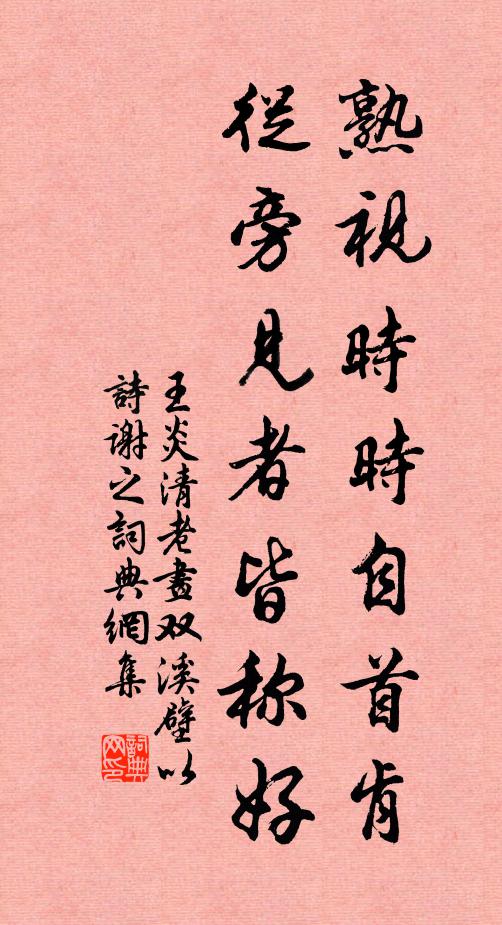 熟視時時自首肯
從旁見者皆称好
王炎清老畫双溪壁以
詩謝之詞典網集
詞典网印